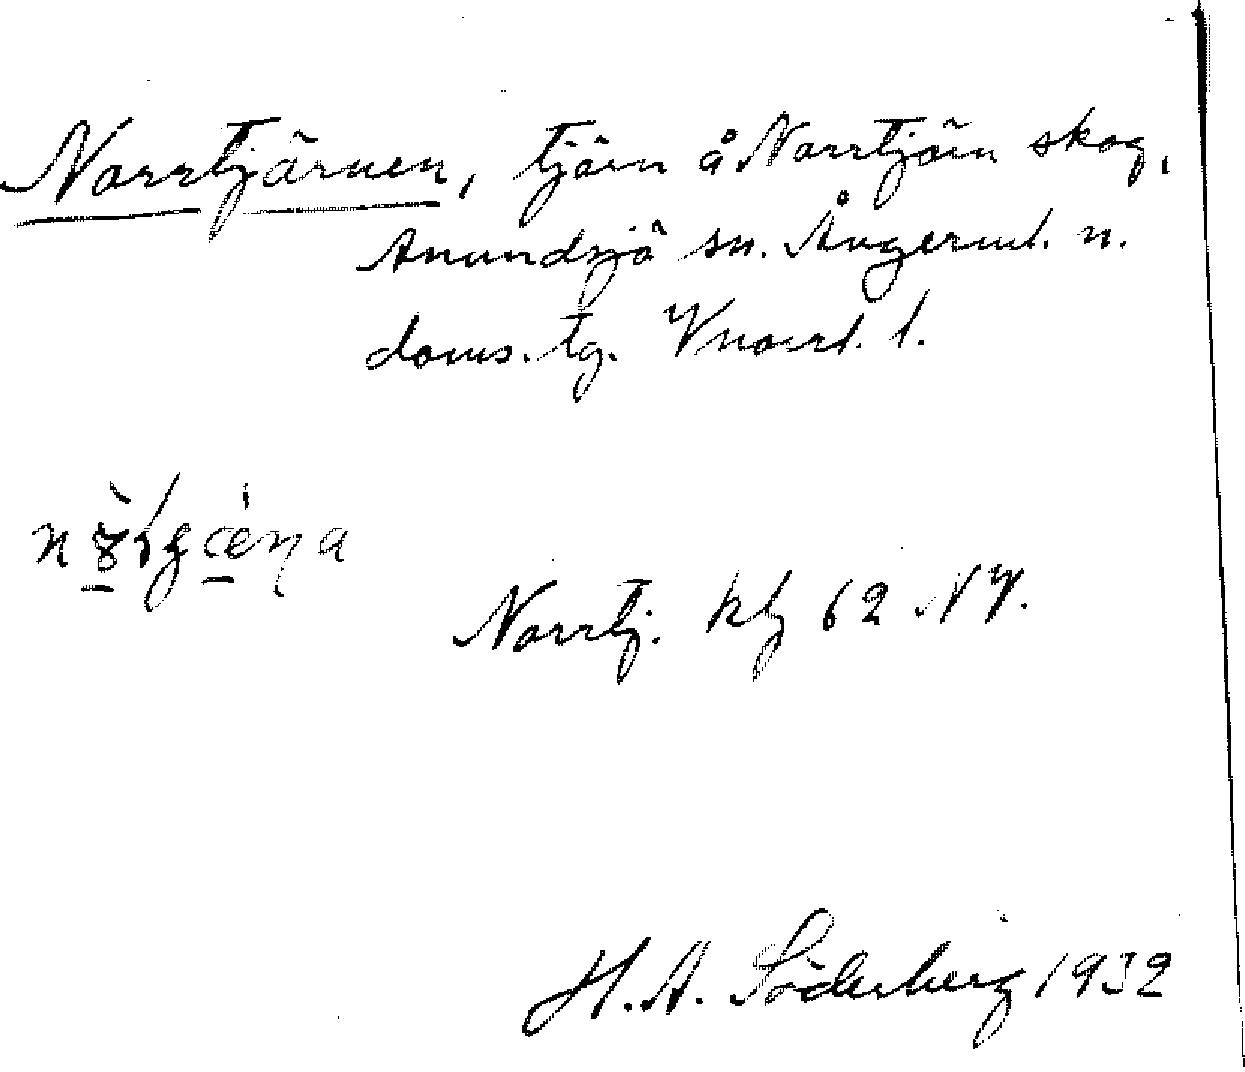 Norrtjärnen, tjärn å Norrtjärn skog,
Anundsjö sn. Ångerml. n.
doms. tg. Vnorrl. l.
Norrtj. kb 62 NV.
H. A. Söderberg 1932